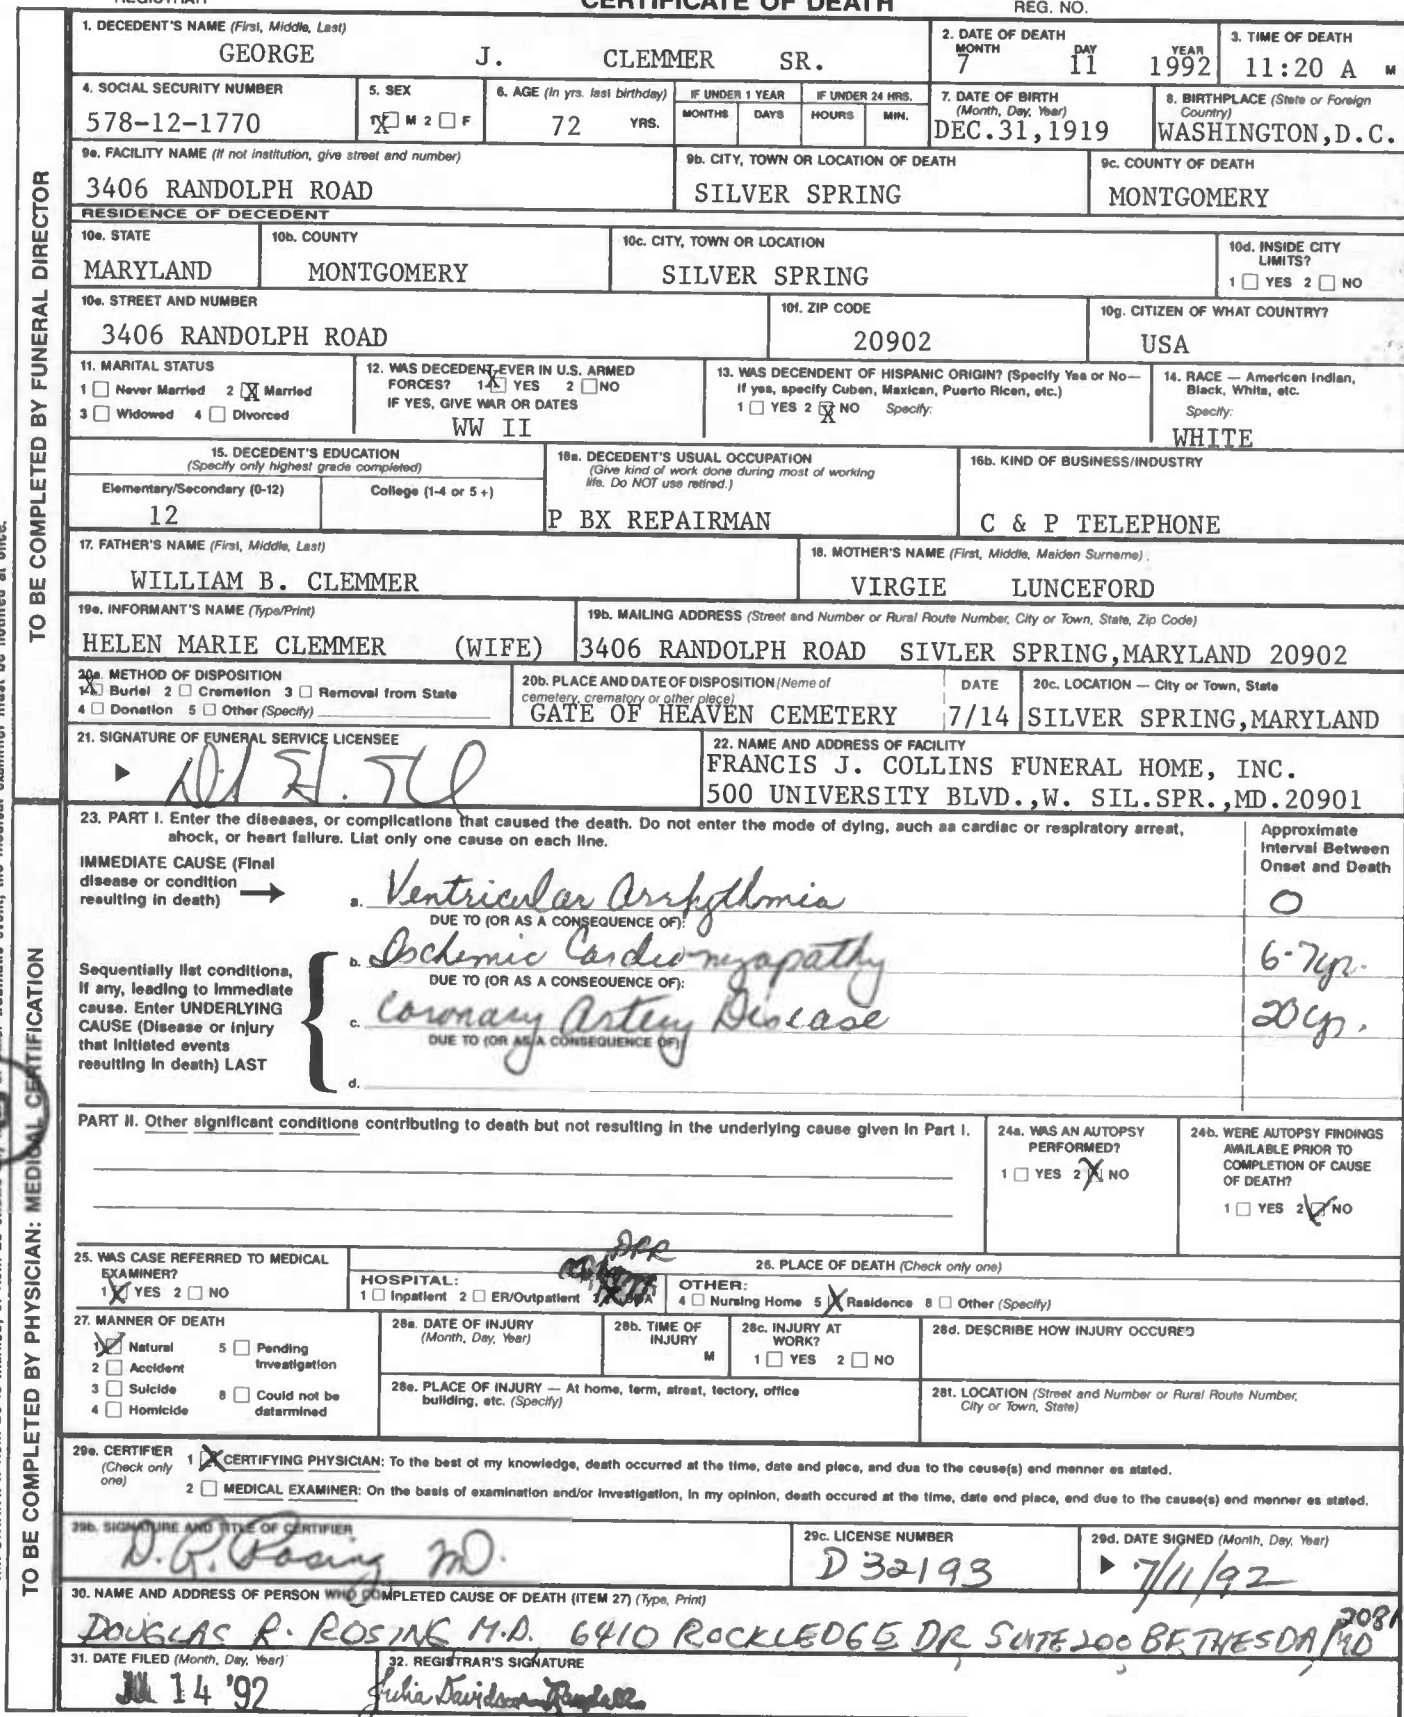 CERTIFICATE OF DEATH
REG. NO.
1. DECEDENT'S NAME (First, Middle, Last)
GEORGE J. CLEMMER SR.
2. DATE OF DEATH
MONTH DAY YEAR
7 11 1992
3. TIME OF DEATH
11:20 A M
4. SOCIAL SECURITY NUMBER
578-12-1770
5. SEX
1 X M 2 F
6. AGE (In yrs. last birthday)
72 YRS.
IF UNDER 1 YEAR
MONTHS DAYS
IF UNDER 24 HRS.
HOURS MIN.
7. DATE OF BIRTH
(Month, Day, Year)
DEC.31,1919
8. BIRTHPLACE (State or Foreign
Country)
WASHINGTON,D.C.
9a. FACILITY NAME (If not institution, give street and number)
3406 RANDOLPH ROAD
9b. CITY, TOWN OR LOCATION OF DEATH
SILVER SPRING
9c. COUNTY OF DEATH
MONTGOMERY
RESIDENCE OF DECEDENT
10a. STATE
MARYLAND
10b. COUNTY
MONTGOMERY
10c. CITY, TOWN OR LOCATION
SILVER SPRING
10d. INSIDE CITY
LIMITS?
1 YES 2 NO
10e. STREET AND NUMBER
3406 RANDOLPH ROAD
10f. ZIP CODE
20902
10g. CITIZEN OF WHAT COUNTRY?
USA
11. MARITAL STATUS
1 Never Married 2 X Married
3 Widowed 4 Divorced
12. WAS DECEDENT EVER IN U.S. ARMED
FORCES? 1 X YES 2 NO
IF YES, GIVE WAR OR DATES
WW II
13. WAS DECENDENT OF HISPANIC ORIGIN? (Specify Yes or No—
If yes, specify Cuban, Mexican, Puerto Rican, etc.)
1 YES 2 X NO Specify:
14. RACE — American Indian,
Black, White, etc.
Specify:
WHITE
15. DECEDENT'S EDUCATION
(Specify only highest grade completed)
Elementary/Secondary (0-12)
12
College (1-4 or 5+)
16a. DECEDENT'S USUAL OCCUPATION
(Give kind of work done during most of working
life. Do NOT use retired.)
P BX REPAIRMAN
16b. KIND OF BUSINESS/INDUSTRY
C & P TELEPHONE
17. FATHER'S NAME (First, Middle, Last)
WILLIAM B. CLEMMER
18. MOTHER'S NAME (First, Middle, Maiden Surname)
VIRGIE LUNCEFORD
19a. INFORMANT'S NAME (Type/Print)
HELEN MARIE CLEMMER (WIFE)
19b. MAILING ADDRESS (Street and Number or Rural Route Number, City or Town, State, Zip Code)
3406 RANDOLPH ROAD SIVLER SPRING,MARYLAND 20902
20a. METHOD OF DISPOSITION
1 X Burial 2 Cremation 3 Removal from State
4 Donation 5 Other (Specify)
20b. PLACE AND DATE OF DISPOSITION (Name of
cemetery, crematory or other place)
GATE OF HEAVEN CEMETERY
DATE
7/14
20c. LOCATION — City or Town, State
SILVER SPRING,MARYLAND
21. SIGNATURE OF FUNERAL SERVICE LICENSEE
22. NAME AND ADDRESS OF FACILITY
FRANCIS J. COLLINS FUNERAL HOME, INC.
500 UNIVERSITY BLVD.,W. SIL.SPR.,MD.20901
TO BE COMPLETED BY FUNERAL DIRECTOR
23. PART I. Enter the diseases, or complications that caused the death. Do not enter the mode of dying, such as cardiac or respiratory arrest,
shock, or heart failure. List only one cause on each line.
Approximate
Interval Between
Onset and Death
IMMEDIATE CAUSE (Final
disease or condition
resulting in death)
a. Ventricular Arrhythmia
0
DUE TO (OR AS A CONSEQUENCE OF):
b. Ischemic Cardiomyopathy
6-7yr.
DUE TO (OR AS A CONSEQUENCE OF):
c. Coronary Artery Disease
20 yr.
DUE TO (OR AS A CONSEQUENCE OF):
d.
Sequentially list conditions,
if any, leading to immediate
cause. Enter UNDERLYING
CAUSE (Disease or injury
that initiated events
resulting in death) LAST
PART II. Other significant conditions contributing to death but not resulting in the underlying cause given in Part I.
24a. WAS AN AUTOPSY
PERFORMED?
1 YES 2 X NO
24b. WERE AUTOPSY FINDINGS
AVAILABLE PRIOR TO
COMPLETION OF CAUSE
OF DEATH?
1 YES 2 NO
25. WAS CASE REFERRED TO MEDICAL
EXAMINER?
1 X YES 2 NO
DRR
26. PLACE OF DEATH (Check only one)
HOSPITAL:
1 Inpatient 2 ER/Outpatient
OTHER:
4 Nursing Home 5 X Residence 6 Other (Specify)
27. MANNER OF DEATH
1 Natural 5 Pending
Investigation
2 Accident
3 Suicide
6 Could not be
determined
4 Homicide
28a. DATE OF INJURY
(Month, Day, Year)
28b. TIME OF
INJURY
M
28c. INJURY AT
WORK?
1 YES 2 NO
28d. DESCRIBE HOW INJURY OCCURED
28e. PLACE OF INJURY — At home, farm, street, factory, office
building, etc. (Specify)
28f. LOCATION (Street and Number or Rural Route Number,
City or Town, State)
29a. CERTIFIER
(Check only
one)
1 X CERTIFYING PHYSICIAN: To the best of my knowledge, death occurred at the time, date and place, and due to the cause(s) and manner as stated.
2 MEDICAL EXAMINER: On the basis of examination and/or investigation, in my opinion, death occured at the time, date and place, and due to the cause(s) and manner as stated.
29b. SIGNATURE AND TITLE OF CERTIFIER
D.R. Rosing MD.
29c. LICENSE NUMBER
D 32193
29d. DATE SIGNED (Month, Day, Year)
7/11/92
30. NAME AND ADDRESS OF PERSON WHO COMPLETED CAUSE OF DEATH (ITEM 27) (Type, Print)
DOUGLAS R. ROSING M.D. 6410 ROCKLEDGE DR, SUITE 200 BETHESDA, MD
31. DATE FILED (Month, Day, Year)
JUL 14 '92
32. REGISTRAR'S SIGNATURE
Julia Davidson-Randall
TO BE COMPLETED BY PHYSICIAN: MEDICAL CERTIFICATION